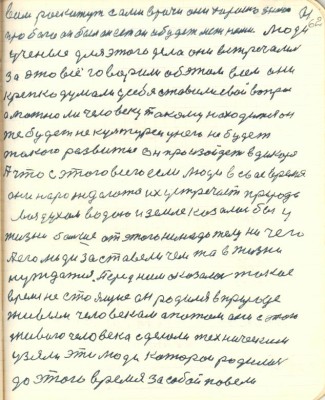 62
про бога он был и есть он и будет между нами Люди
ученые для этого дела они встречалися
за это всё говорили об этом всем они
крепко думали себя ставили свой вопрос
а можно ли человеку такому находится он
же будет не культурен у него не будет
такого развитье он произойдет в дикоря
А что с этого всего если люди в свое время
они нарождалися их устречает природа
воздухом водою и землею казалося бы у
жизни больше от этого ненадо телу ничего
Его люди заставели чем то в жизни
нуждатся. Перед ним оказалося такое
время не стоящие он родился в природе
живым человеком а потом они с этого
живого человека сделали технический
узяли эти люди которое родилися
до этого время за собой повели